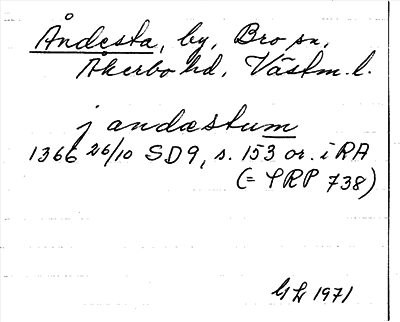 Åndesta, by, Bro sn,
Åkerbo hd, Västm. l.
j andæstum
1366 26/10 SD9, s. 153 or. i RA
(= SRP 738)
1971